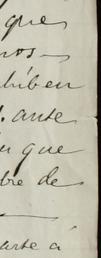 que
nos-
hiben
. ante
que
bre de
arte á